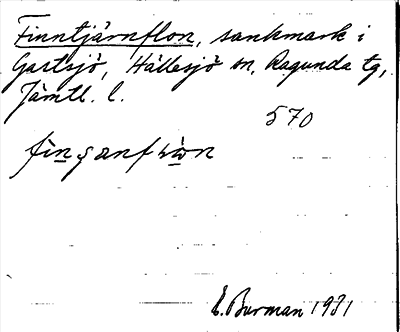 Finntjärnflon, sankmark i
Gastsjö, Hällesjö sn, Ragunda tg,
Jämtl. l.
570
E. Burman 1931